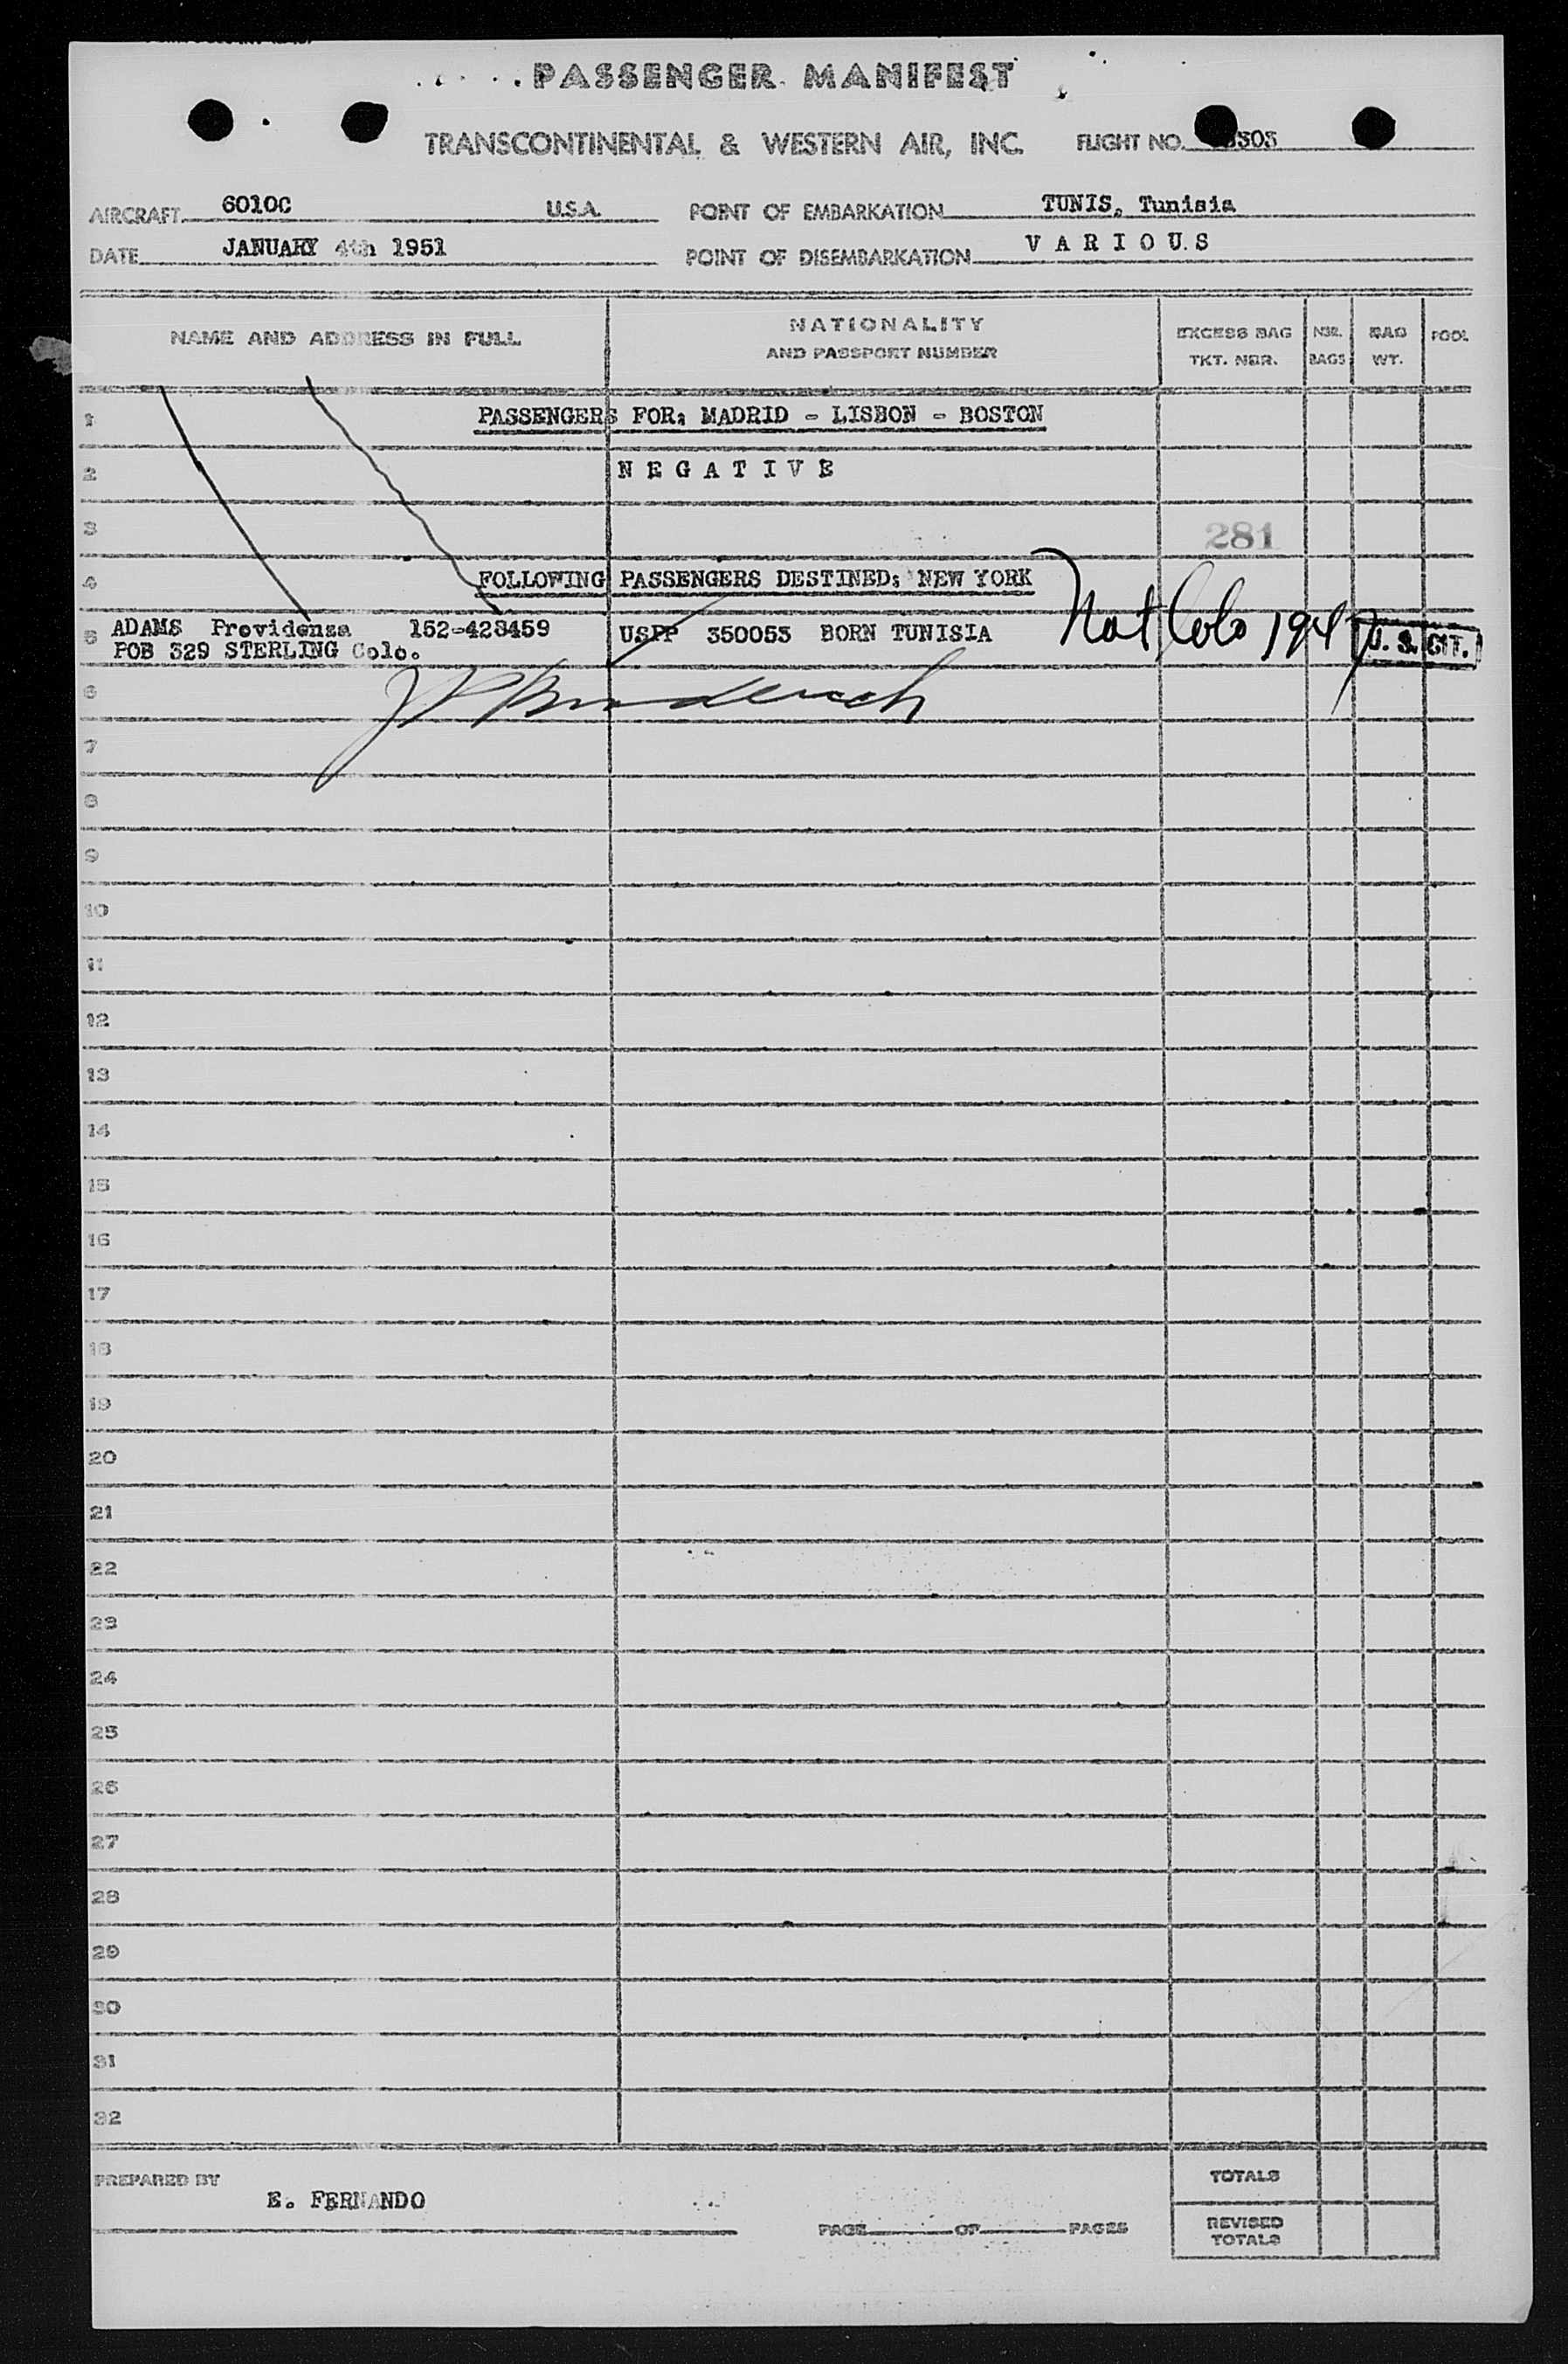 PASSENGER MANIFEST
TRANSCONTINENTAL & WESTERN AIR, INC. FLIGHT NO. 303
AIRCRAFT 6010C U.S.A. POINT OF EMBARKATION TUNIS, Tunisia
DATE JANUARY 4th 1951 POINT OF DISEMBARKATION V A R I O U S
NAME AND ADDRESS IN FULL NATIONALITY AND PASSPORT NUMBER EXCESS BAG TKT. NBR. NBR. BAGS BAG WT. POOL
1 PASSENGERS FOR: MADRID - LISBON - BOSTON
2 N E G A T I V E
3 281
4 FOLLOWING PASSENGERS DESTINED: NEW YORK
5 ADAMS Providenza 152-428459 USPP 350053 BORN TUNISIA Nat Colo 1947 U. S. CIT.
POB 329 STERLING Colo.
6
7
8
9
10
11
12
13
14
15
16
17
18
19
20
21
22
23
24
25
26
27
28
29
30
31
32
PREPARED BY E. FERNANDO
PAGE OF PAGES
TOTALS
REVISED TOTALS